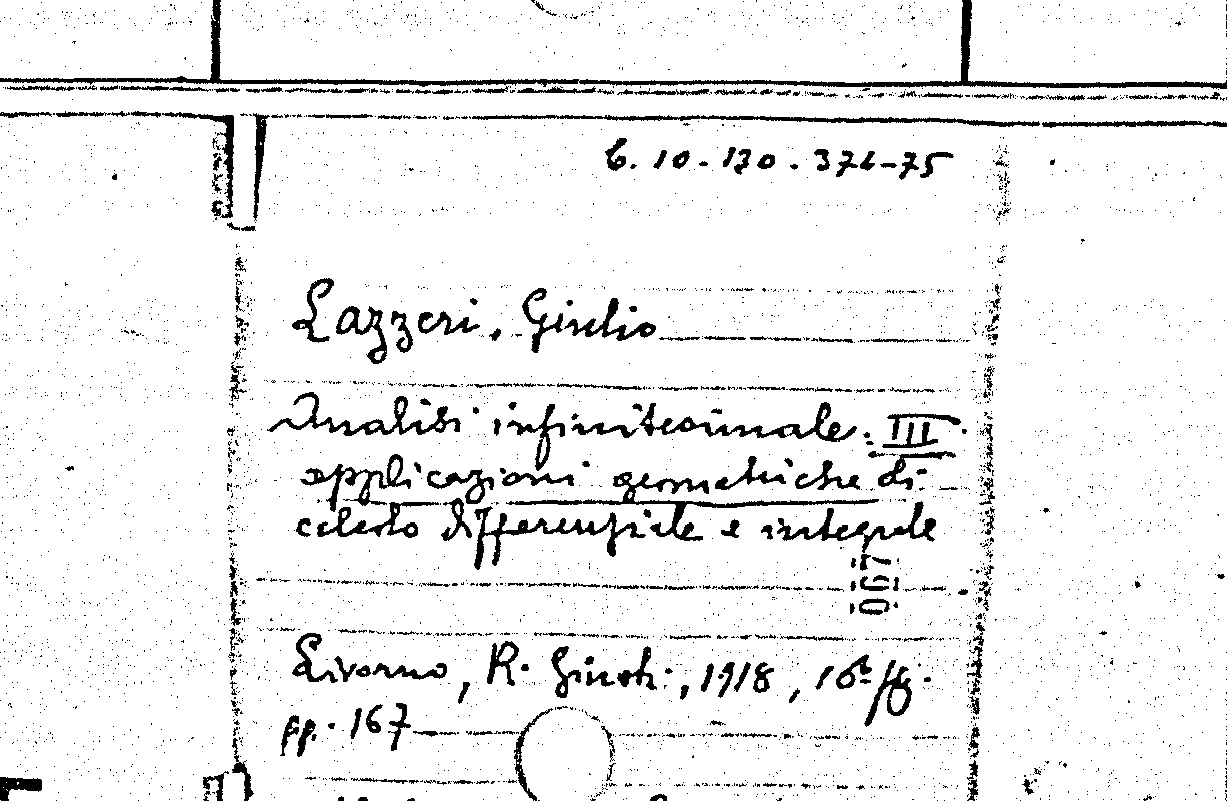 6. 10 - 130 . 374-75
Lazzeri, Giulio
Analisi infinitesimale: III.
applicazioni geometriche di
calcolo differenziale e integrale
067
Livorno, R. Giusti, 1918, 16° fig.
pp. 167